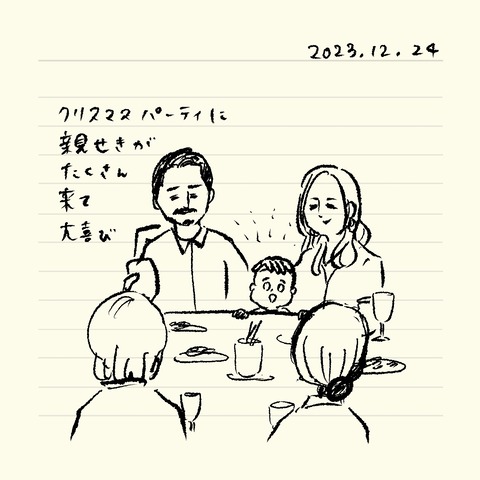 2023.12.24
クリスマス パーティに
親せきが
たくさん
来て
大喜び